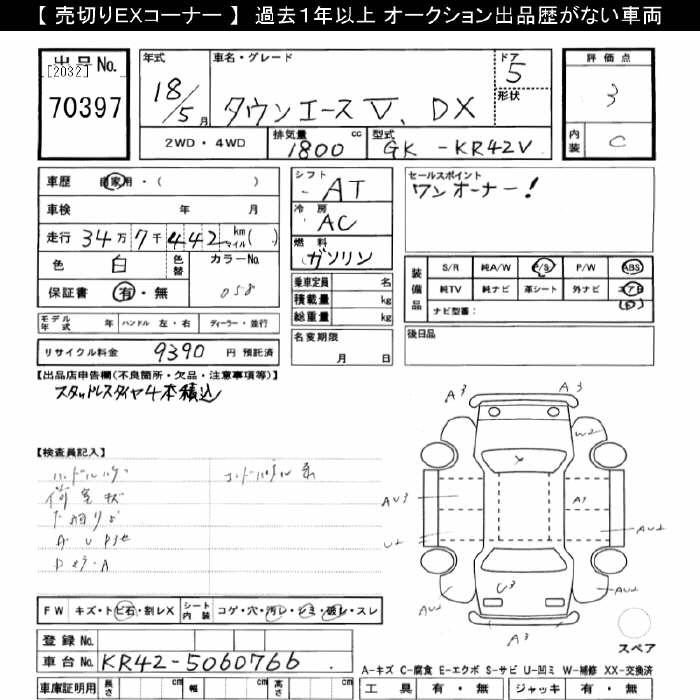 【 売切りEXコーナー 】 過去1年以上 オークション出品歴がない車両
出品No.
[2032]
70397
年式
18/5月
車名・グレード
タウンエース V. DX
ドア
5
形状
2WD・4WD
排気量
1800 cc
型式
GK -KR42V
評価点
3
内装
C
車歴 自家用・( )
車検 年 月
走行 34万7千442 km マイル ( )
色 白
色替
カラーNo.
058
保証書 有・無
モデル年式 年 ハンドル 左・右 ディーラー・並行
リサイクル料金 9390 円 預託済
シフト
AT
冷房
AC
燃料
ガソリン
乗車定員 名
積載量 kg
総重量 kg
名変期限
月 日
セールスポイント
ワンオーナー!
装備品
S/R 純A/W P/S P/W ABS
純TV 純ナビ 革シート 外ナビ エアB
ナビ型番: (D)
後日品
【出品店申告欄(不良箇所・欠品・注意事項等)】
スタッドレスタイヤ4本積込
【検査員記入】
A3
A3
W2
AU3
A3
AU2
U2
X
U3
AU2
AU2
A3
スペア
FW キズ・トビ石・割レX シート内装 コゲ・穴・汚レ・シミ・破レ・スレ
登録No.
車台No. KR42-5060766
車庫証明用 長さ cm 幅 cm 高さ cm
A-キズ C-腐食 E-エクボ S-サビ U-凹ミ W-補修 XX-交換済
工具 有・無 ジャッキ 有・無